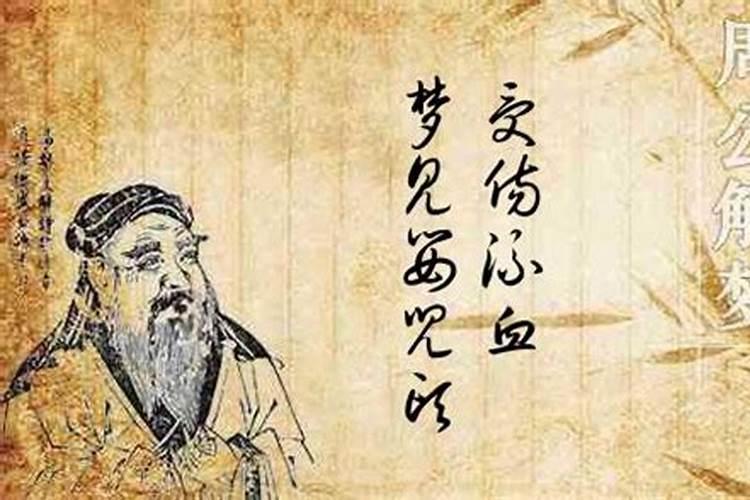 梦见婴兒头
受伤流血
周公解梦